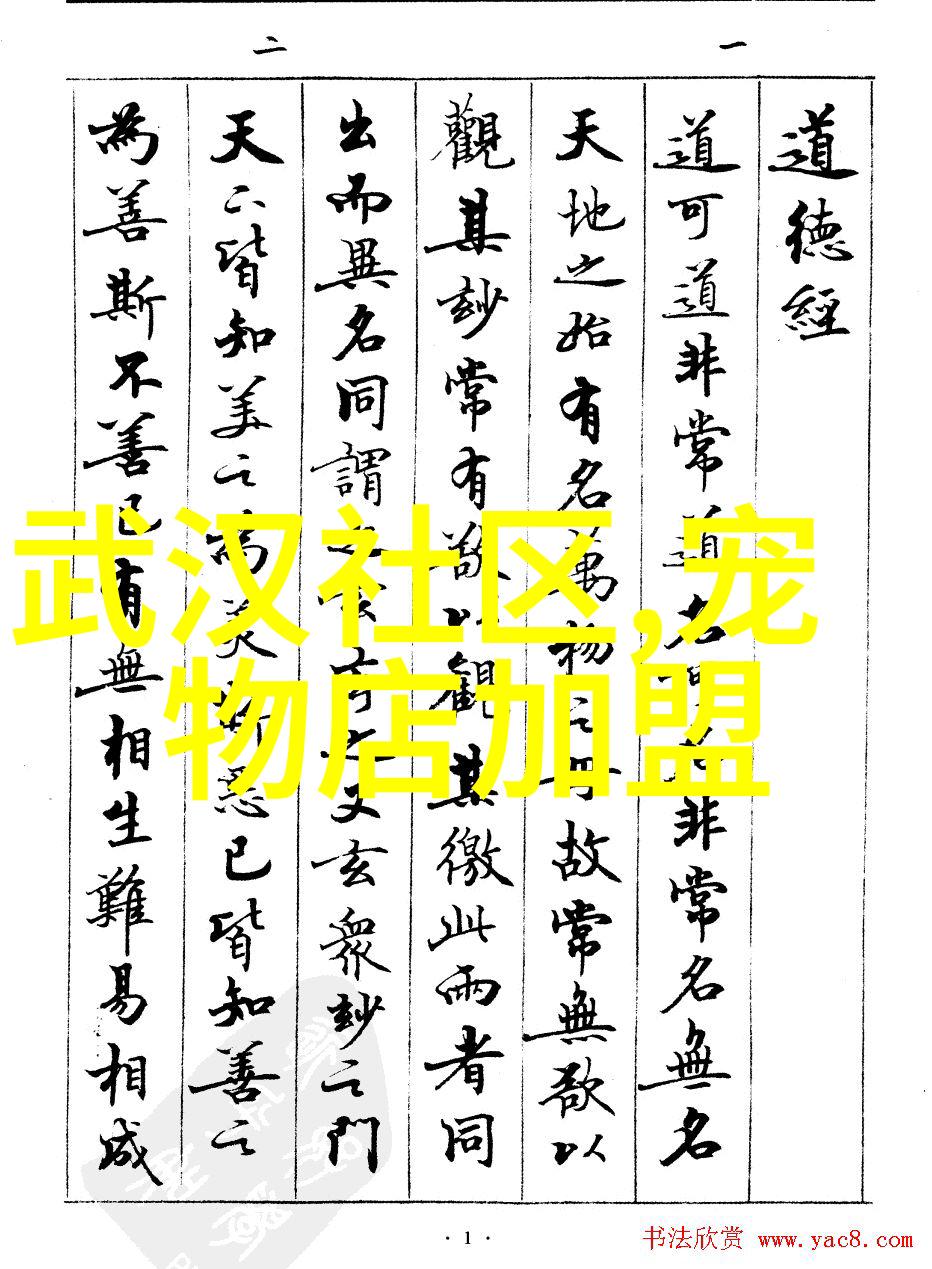 一
二
道德經
道可道非常道名可名非常名無名
天地之始有名萬物之母故常無欲以
觀其玅常有欲以觀其徼此兩者同
出而異名同謂之玄玄之又玄眾玅之門
天下皆知美之為美斯惡已皆知善之
為善斯不善已有無相生難易相成
武汉社区,宠
物店加盟
· 1 ·
书法欣赏 www.yac8.com